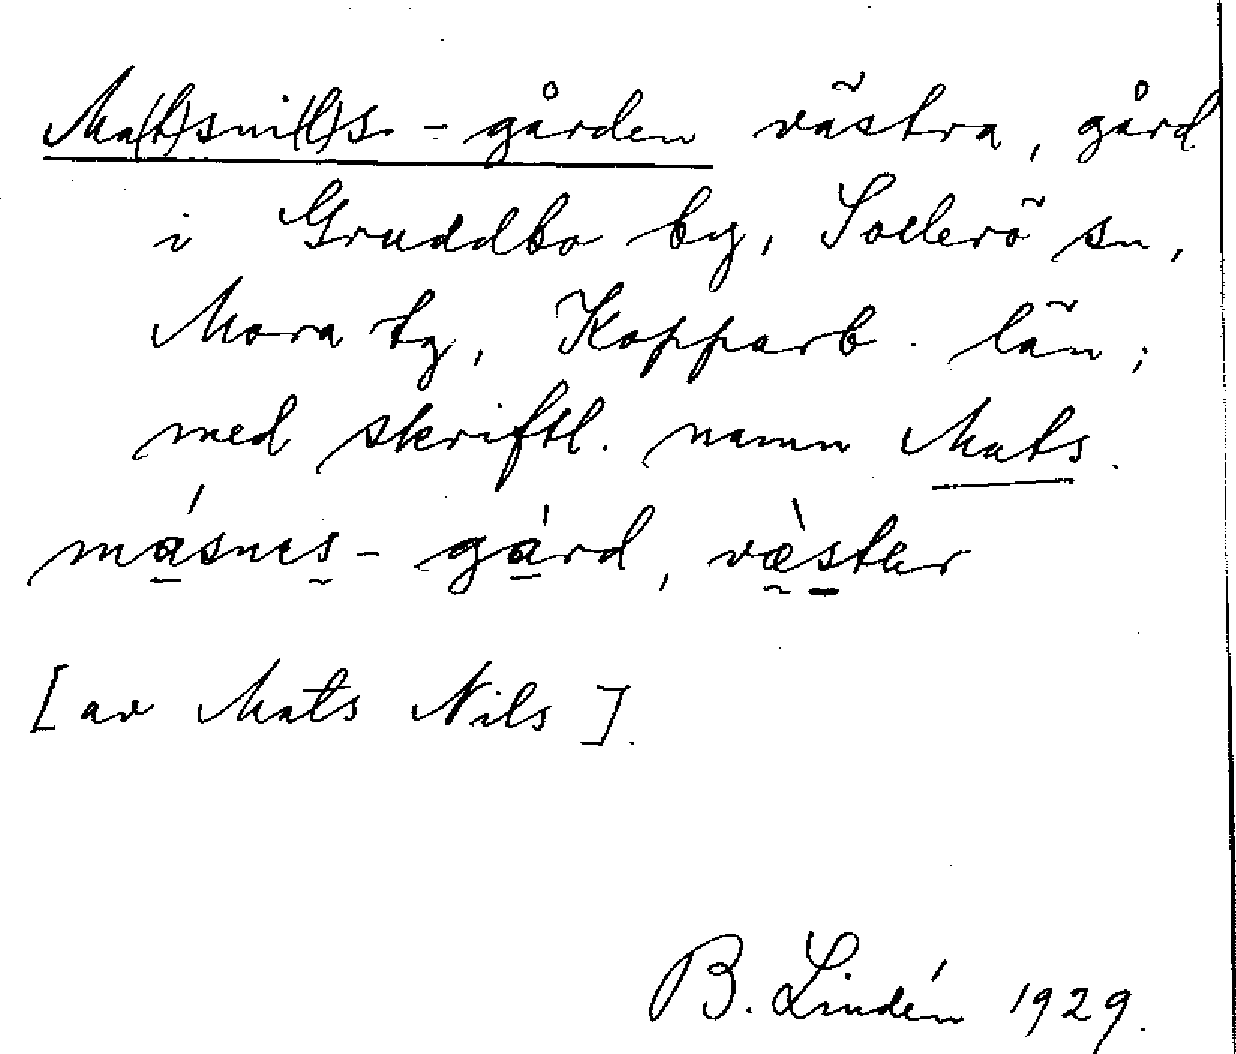 Ma(t)sni(l)s-gården västra, gård
i Gruddbo by, Sollerö sn,
Mora tg, Kopparb. län;
med skriftl. namn Mats.
másnes-gárd, væ̀ster
[av Mats Nils].
B. Lindén 1929.